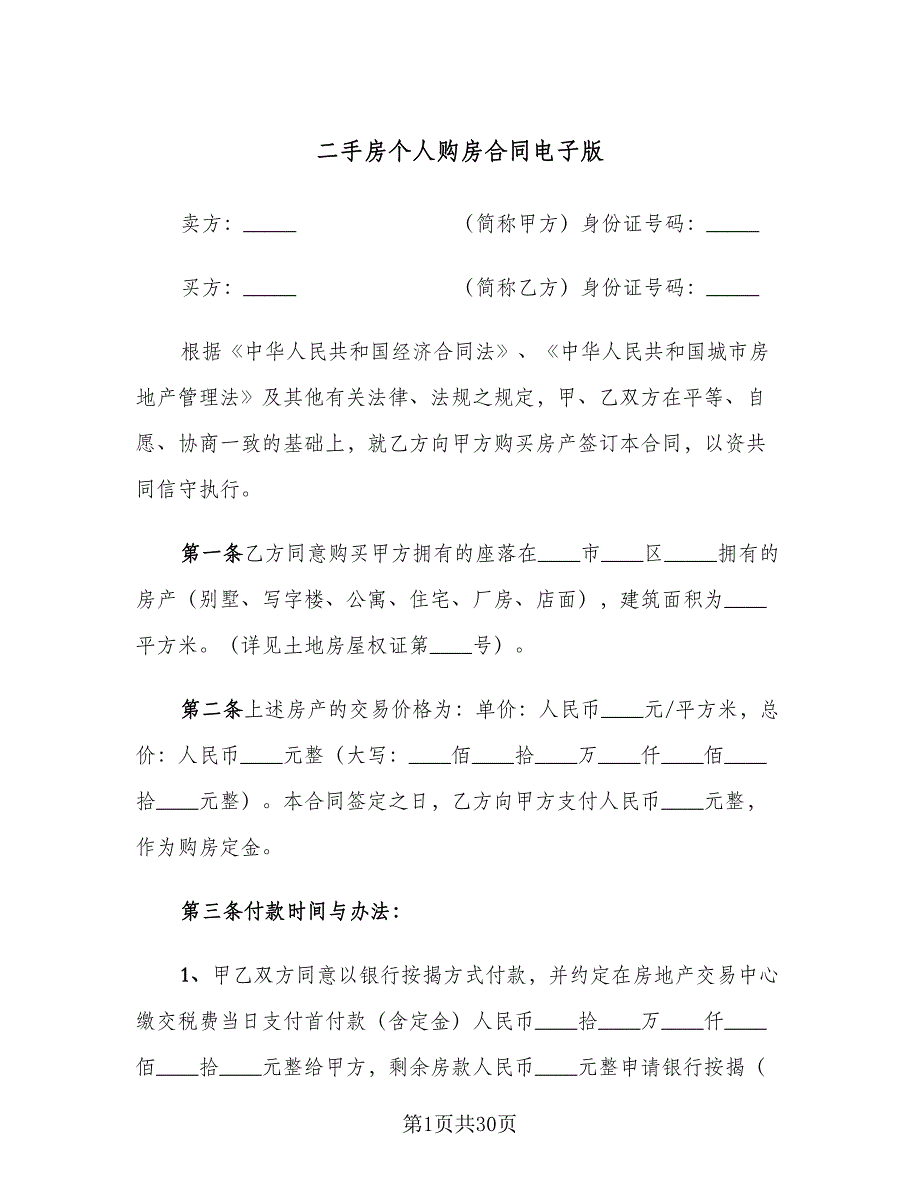 二手房个人购房合同电子版
卖方：_____ （简称甲方）身份证号码：_____
买方：_____ （简称乙方）身份证号码：_____
根据《中华人民共和国经济合同法》、《中华人民共和国城市房
地产管理法》及其他有关法律、法规之规定，甲、乙双方在平等、自
愿、协商一致的基础上，就乙方向甲方购买房产签订本合同，以资共
同信守执行。
第一条乙方同意购买甲方拥有的座落在____市____区_____拥有的
房产（别墅、写字楼、公寓、住宅、厂房、店面），建筑面积为____
平方米。（详见土地房屋权证第____号）。
第二条上述房产的交易价格为：单价：人民币____元/平方米，总
价：人民币____元整（大写：____佰____拾____万____仟____佰____
拾____元整）。本合同签定之日，乙方向甲方支付人民币____元整，
作为购房定金。
第三条付款时间与办法：
1、甲乙双方同意以银行按揭方式付款，并约定在房地产交易中心
缴交税费当日支付首付款（含定金）人民币____拾____万____仟____
佰____拾____元整给甲方，剩余房款人民币____元整申请银行按揭（
第1页共30页